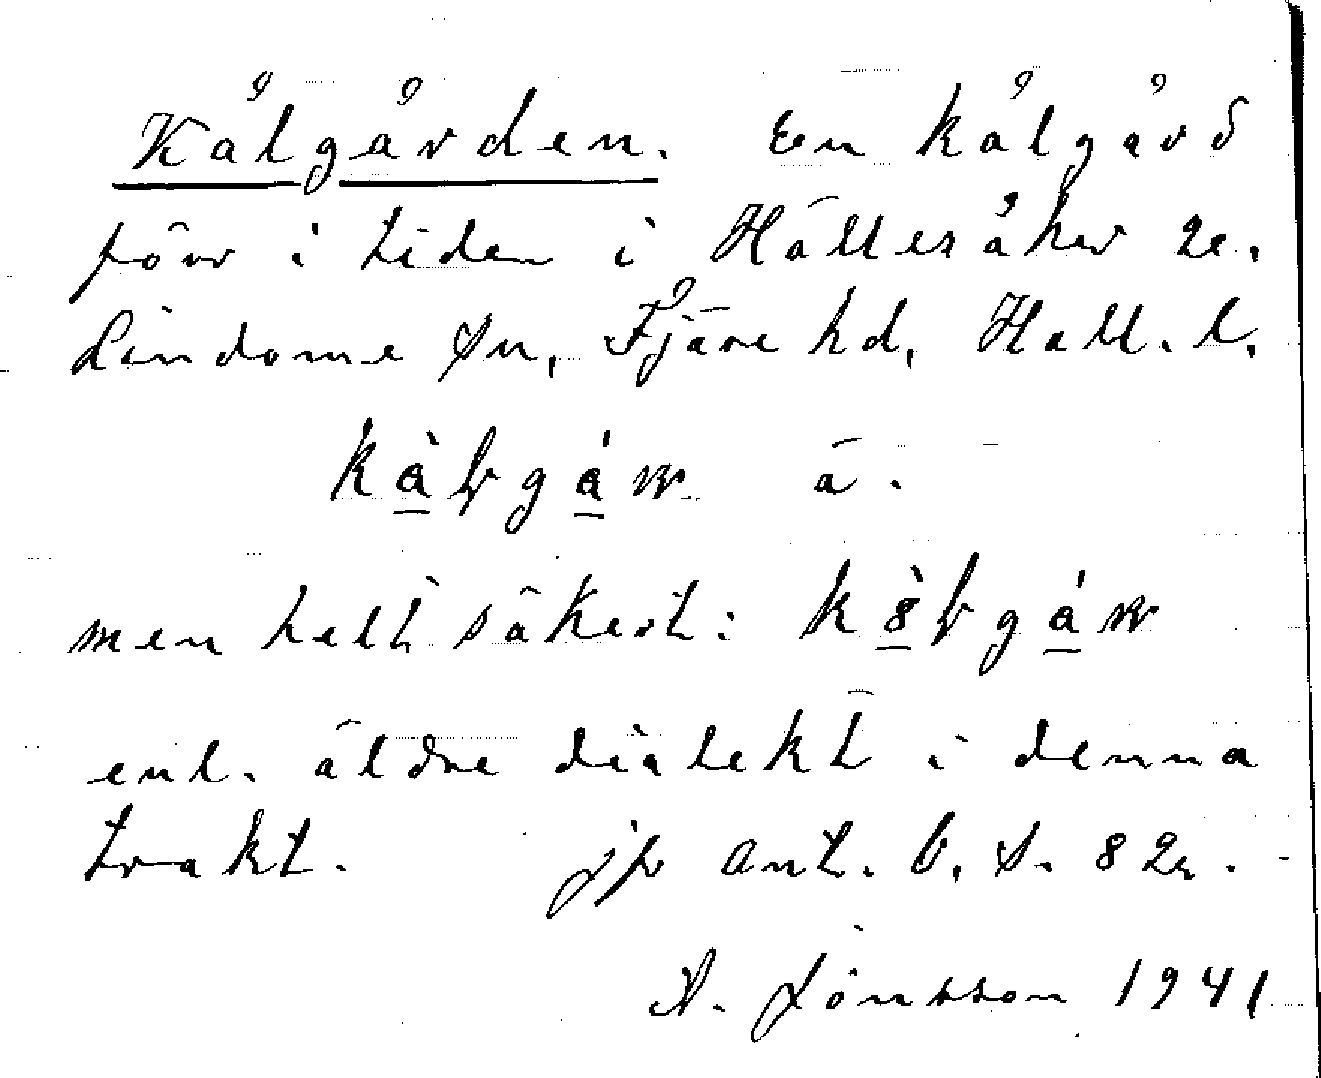 Kålgården. En kålgård
förr i tiden i Hällesåker 2e.
Lindome sn, Fjäre hd, Hall. l.
men helt säkert:
enl. äldre dialekt i denna
trakt. jfr ant. b. s. 82.
A. Jönsson 1941